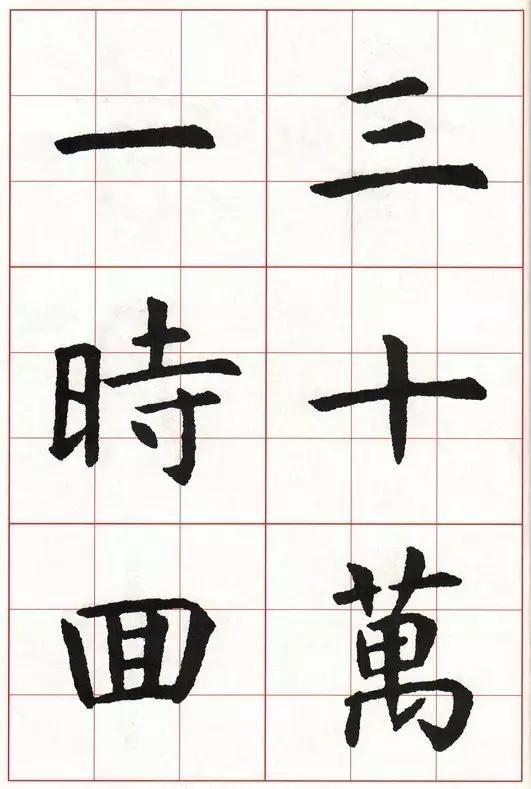 三十萬
一時囬